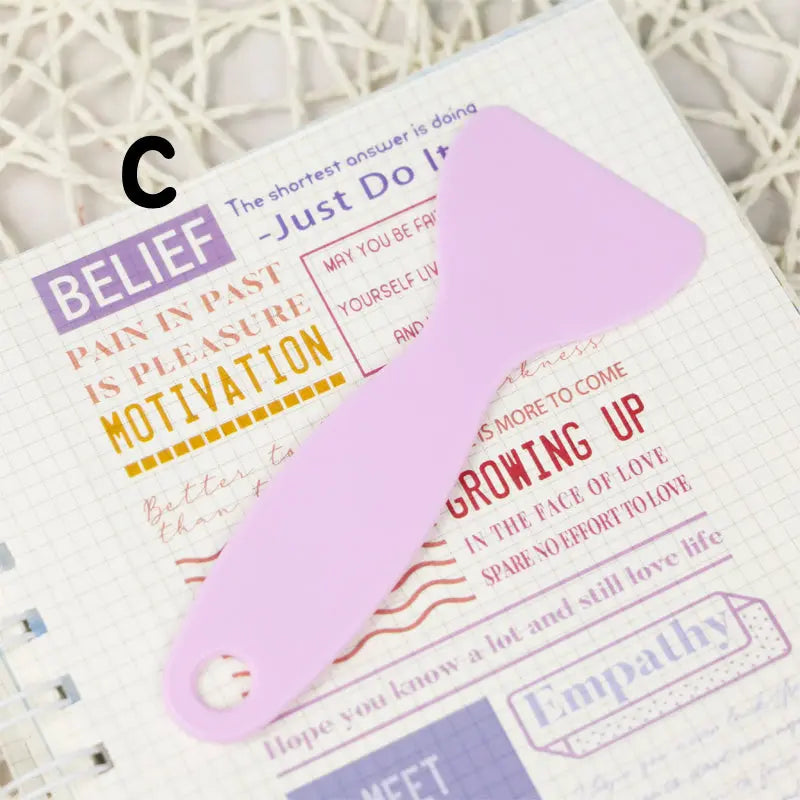 C
The shortest answer is doing
-Just Do It
BELIEF
MAY YOU BE
YOURSELF
AND
PAIN IN PAST
IS PLEASURE
MOTIVATION
Better to
than
IS MORE TO COME
GROWING UP
IN THE FACE OF LOVE
SPARE NO EFFORT TO LOVE
Hope you know a lot and still love life
Empathy
MEET